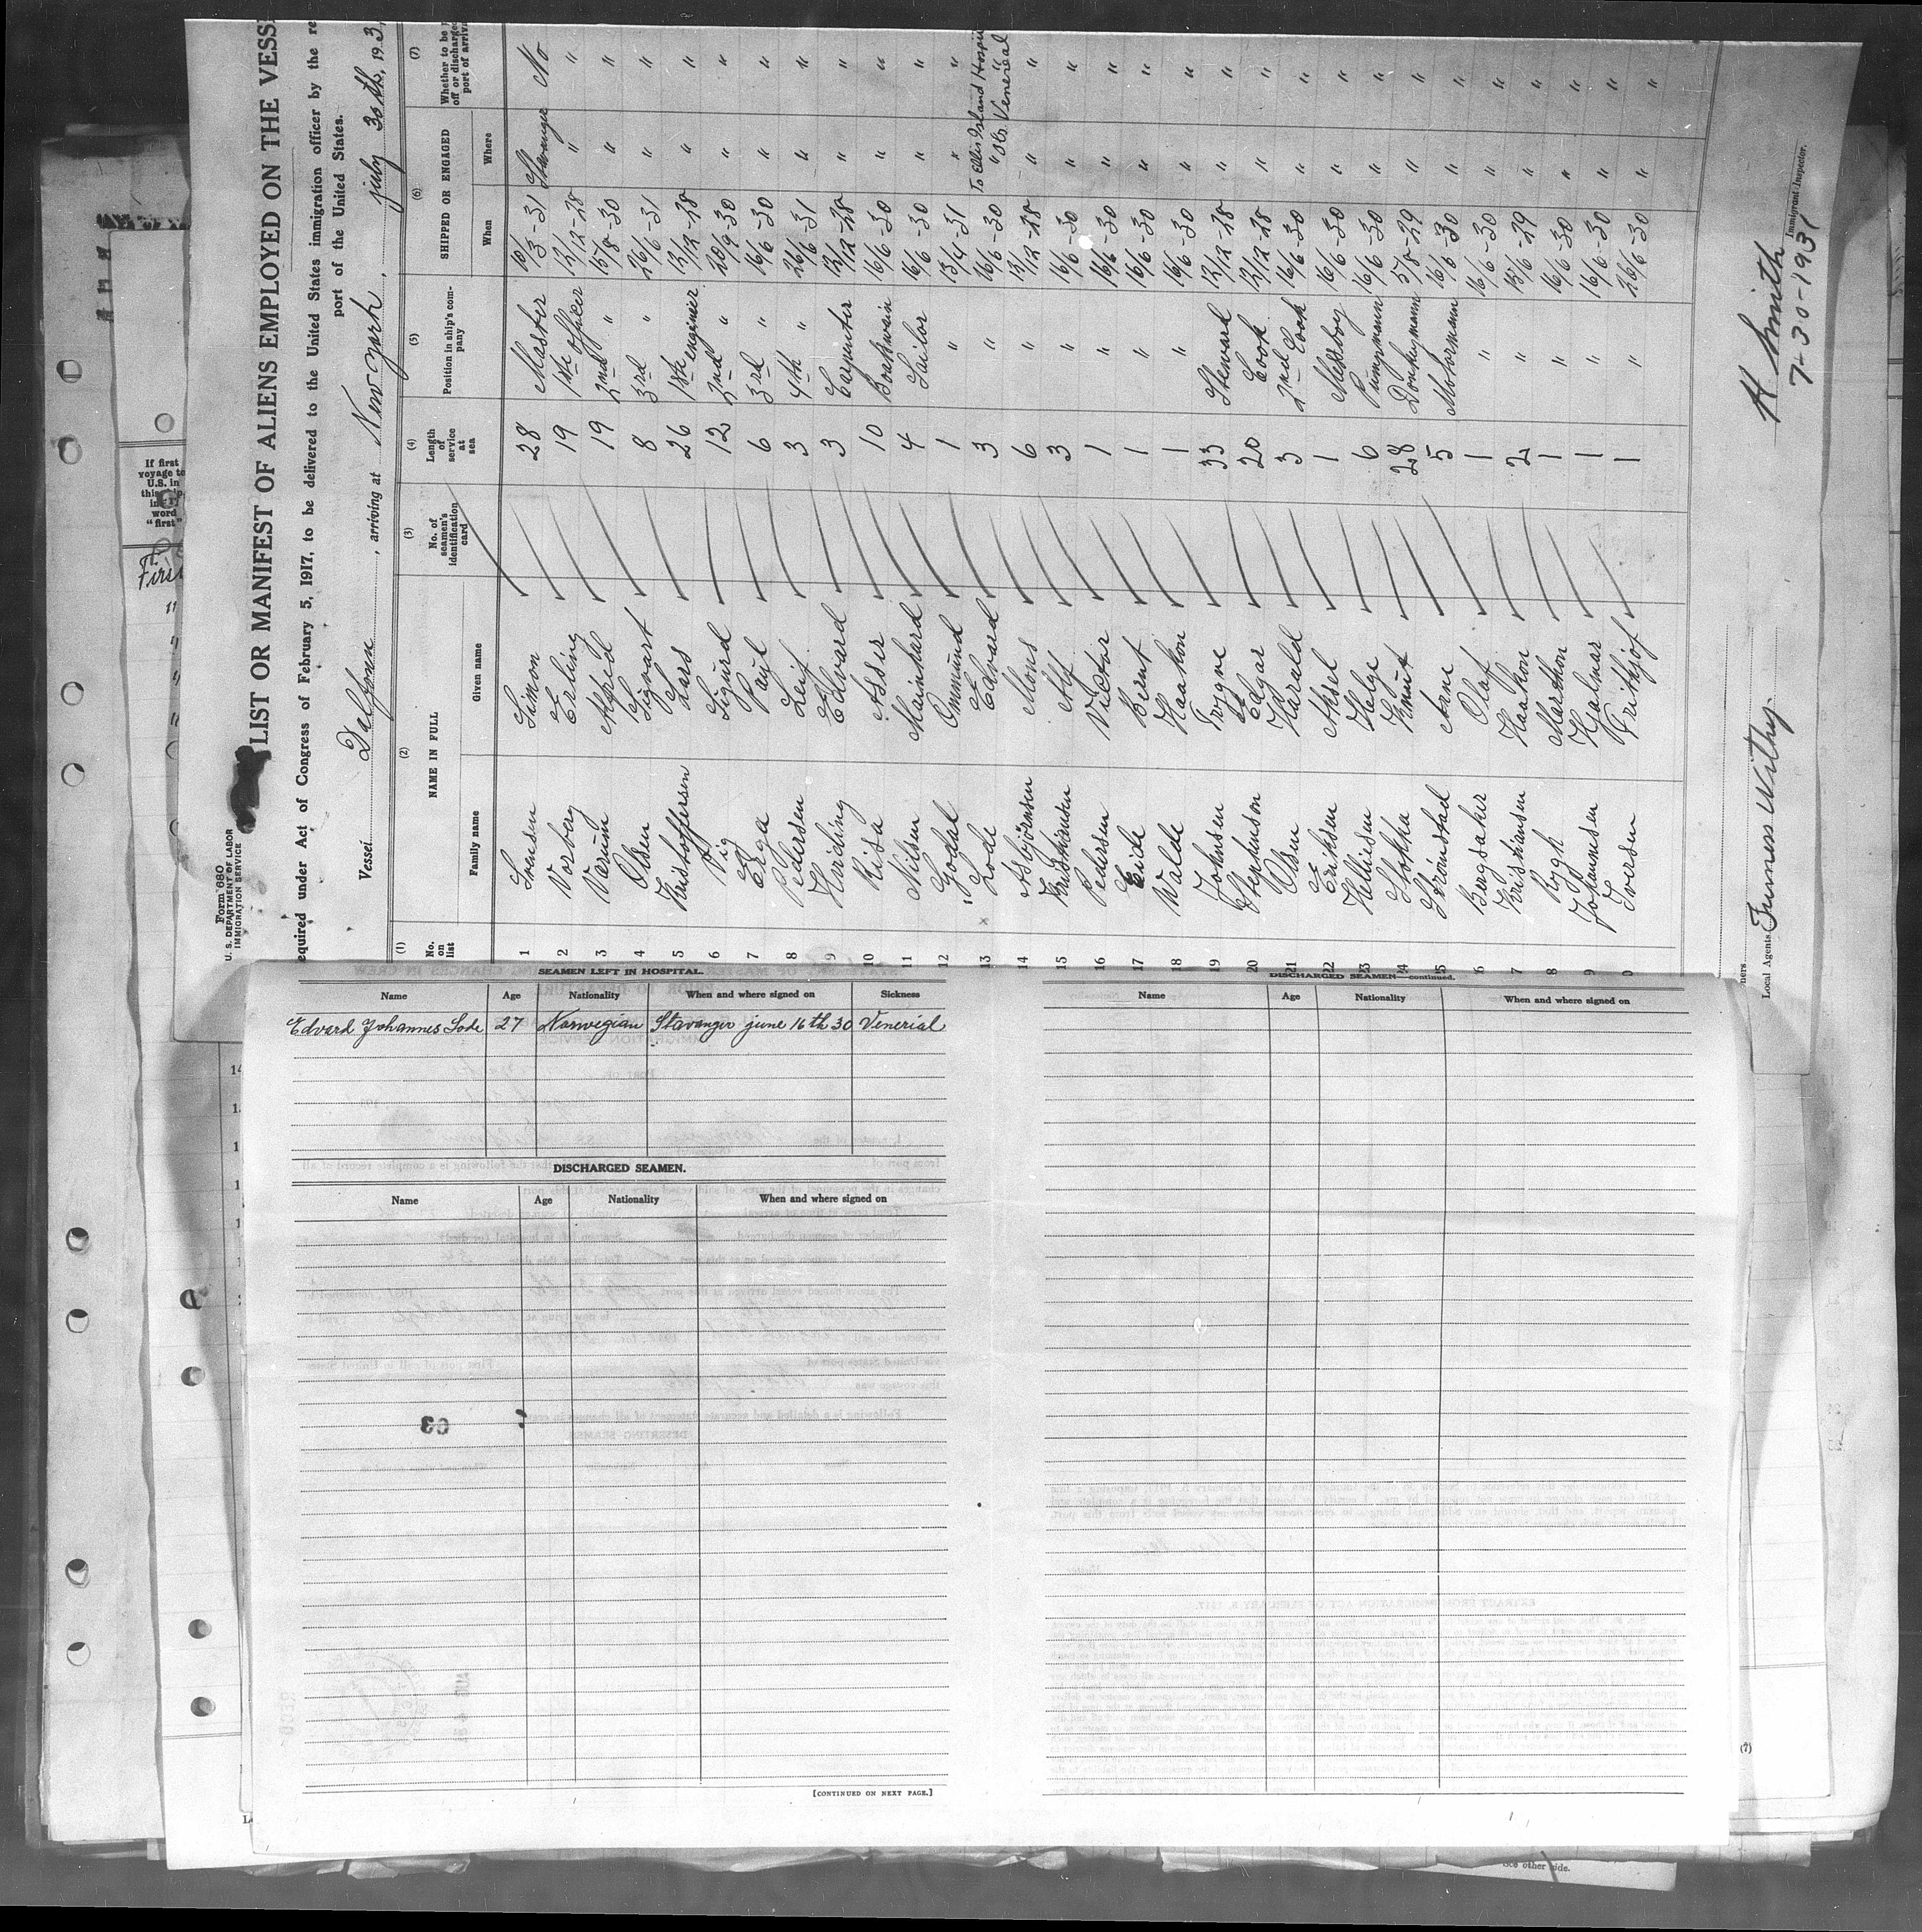 Form 680
U. S. DEPARTMENT OF LABOR
IMMIGRATION SERVICE
LIST OR MANIFEST OF ALIENS EMPLOYED ON THE VESS
equired under Act of Congress of February 5, 1917, to be delivered to the United States immigration officer by the re
port of the United States.
Vessel Dalfonn, arriving at New york, july 30th, 193
(1) (2) (3) (4) (5) (6) (7)
No. on list NAME IN FULL No. of seamen's identification card Length of service at sea Position in ship's company SHIPPED OR ENGAGED Whether to be off or discharged port of arriva
Family name Given name When Where
1 Svensen Simon 28 Master 10/3-31 Stavanger No
2 Vorberg Erling 19 1ste officer 12/12-28 " "
3 Varum Alfred 19 2nd " 15/8-30 " "
4 Olsen Sigvart 8 3rd " 26/6-31 " "
5 Kristoffersen Lars 26 1ste enginier 12/12-28 " "
6 Vig Sigurd 12 2nd " 20/9-30 " "
7 Erga Paul 6 3rd " 16/6-30 " "
8 Pedersen Leif 3 4th " 26/6-31 " "
9 Hinching Edvard 3 Carpenter 12/12-28 " "
10 Risa Asser 10 Boatswain 16/6-30 " "
11 Nilsen Mainhard 4 Sailor 16/6-30 " "
12 Godal Ommund 1 " 13/4-31 " "
13 Lode Edvard 3 " 16/6-30 " "
To Ellis Island Hospi
Obs Venereal
14 Asbjörnsen Mons 6 " 12/12-28 " "
15 Kristiansen Alf 3 " 16/6-30 " "
16 Pedersen Victor 1 " 16/6-30 " "
17 Eide Bernt 1 " 16/6-30 " "
18 Walde Haakon 1 " 16/6-30 " "
19 Johnsen Trygve 33 Steward 12/12-28 " "
20 Stephenson Edgar 20 Cook 12/12-28 " "
21 Olsen Harald 3 2nd Cook 16/6-30 " "
22 Eriksen Aksel 1 Messboy 16/6-30 " "
23 Helliesen Helge 6 Pumpmann 16/6-30 " "
24 Stokka Knut 28 Donkeymann 5/8-29 " "
5 Strömstad Arne 5 Motormann 16/6-30 " "
6 Bergsaker Olaf 1 " 16/6-30 " "
7 Kristiansen Haakon 2 " 15/6-29 " "
8 Rygh Marthon 1 " 16/6-30 " "
9 Johannesen Hjalmar 1 " 16/6-30 " "
0 Iversen Frithjof 1 " 26/6-30 " "
ners
Local Agents Furness Withy
H Smith
Immigrant Inspector.
7-30-1931
If first
voyage to
U.S. in
this
in
word
"first"
First
SEAMEN LEFT IN HOSPITAL.
Name Age Nationality When and where signed on Sickness
Edvard Johannes Lode 27 Norwegian Stavanger june 16th 30 Venerial
DISCHARGED SEAMEN.
Name Age Nationality When and where signed on
63
[CONTINUED ON NEXT PAGE.]
DISCHARGED SEAMEN—continued.
Name Age Nationality When and where signed on
(7)
See other side.